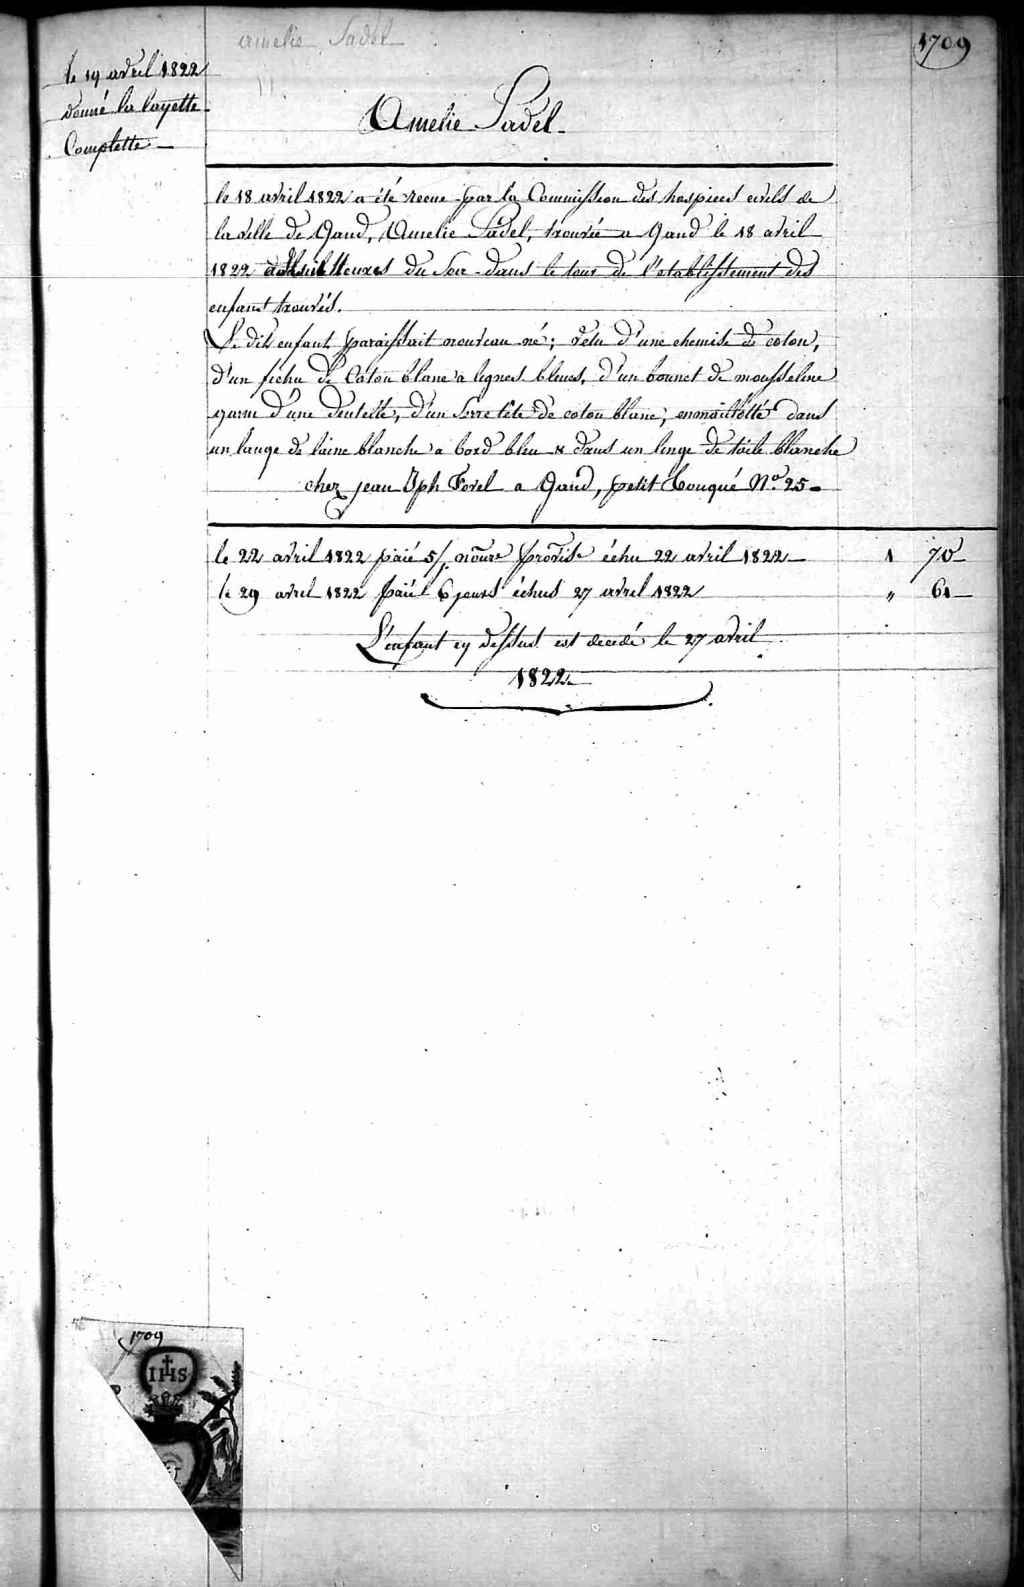 amelie Sadel
1709
le 19 avril 1822
donné la layette
Complette
Amelie Sadel
le 18 avril 1822 a été recue par la Commission des hospices civils de
la ville de Gand, Amelie Sadel, trouvée a Gand le 18 avril
1822 heures du Soir dans le tour de l'etablissement des
enfans trouvés.
Le dit enfant paraissait nouveau né; vetu d'une chemise de coton,
d'un fichu de Coton blanc a lignes bleues, d'un bonnet de mousseline
garni d'une dentelle, d'un serre tête de coton blanc, emmaillotté dans
un lange de laine blanche a bord bleu & dans un linge de toile blanche
chez jean Jph Forel a Gand, petit Touqué No. 25
le 22 avril 1822 paié 5/. nourre provise échu 22 avril 1822 1 70
le 29 avril 1822 paié 6 jours échus 27 avril 1822 " 61
L'enfant cy dessus est decedé le 27 avril
1822
1709
IHS